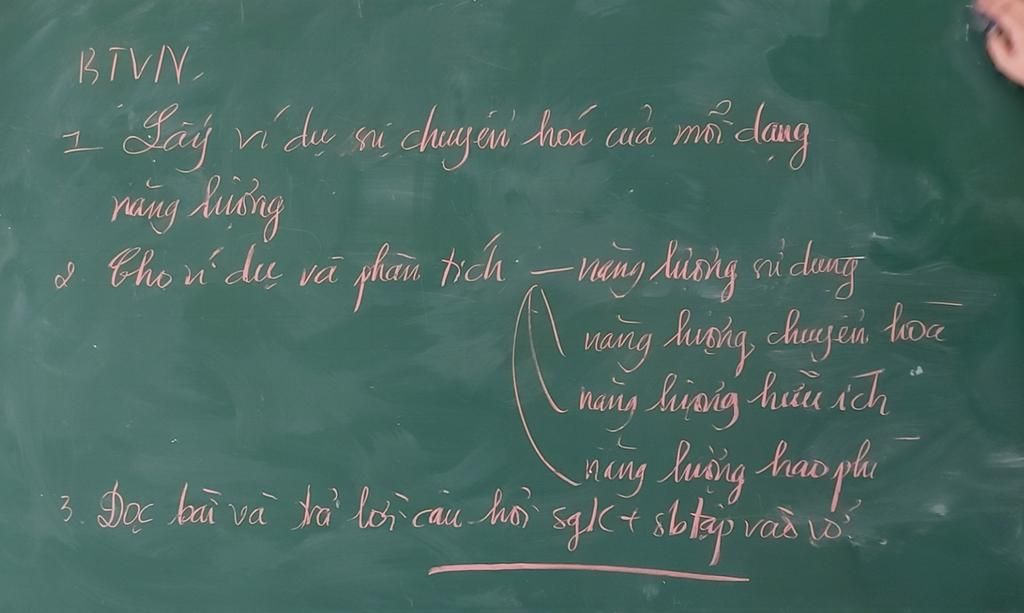 BTVN.
1 Lấy ví dụ sự chuyển hoá của mỗi dạng
năng lượng
2. Cho ví dụ và phân tích - năng lượng sử dụng
năng lượng chuyển hoá
năng lượng hữu ích
năng lượng hao phí
3. Đọc bài và trả lời câu hỏi sgk + sbtập vào vở